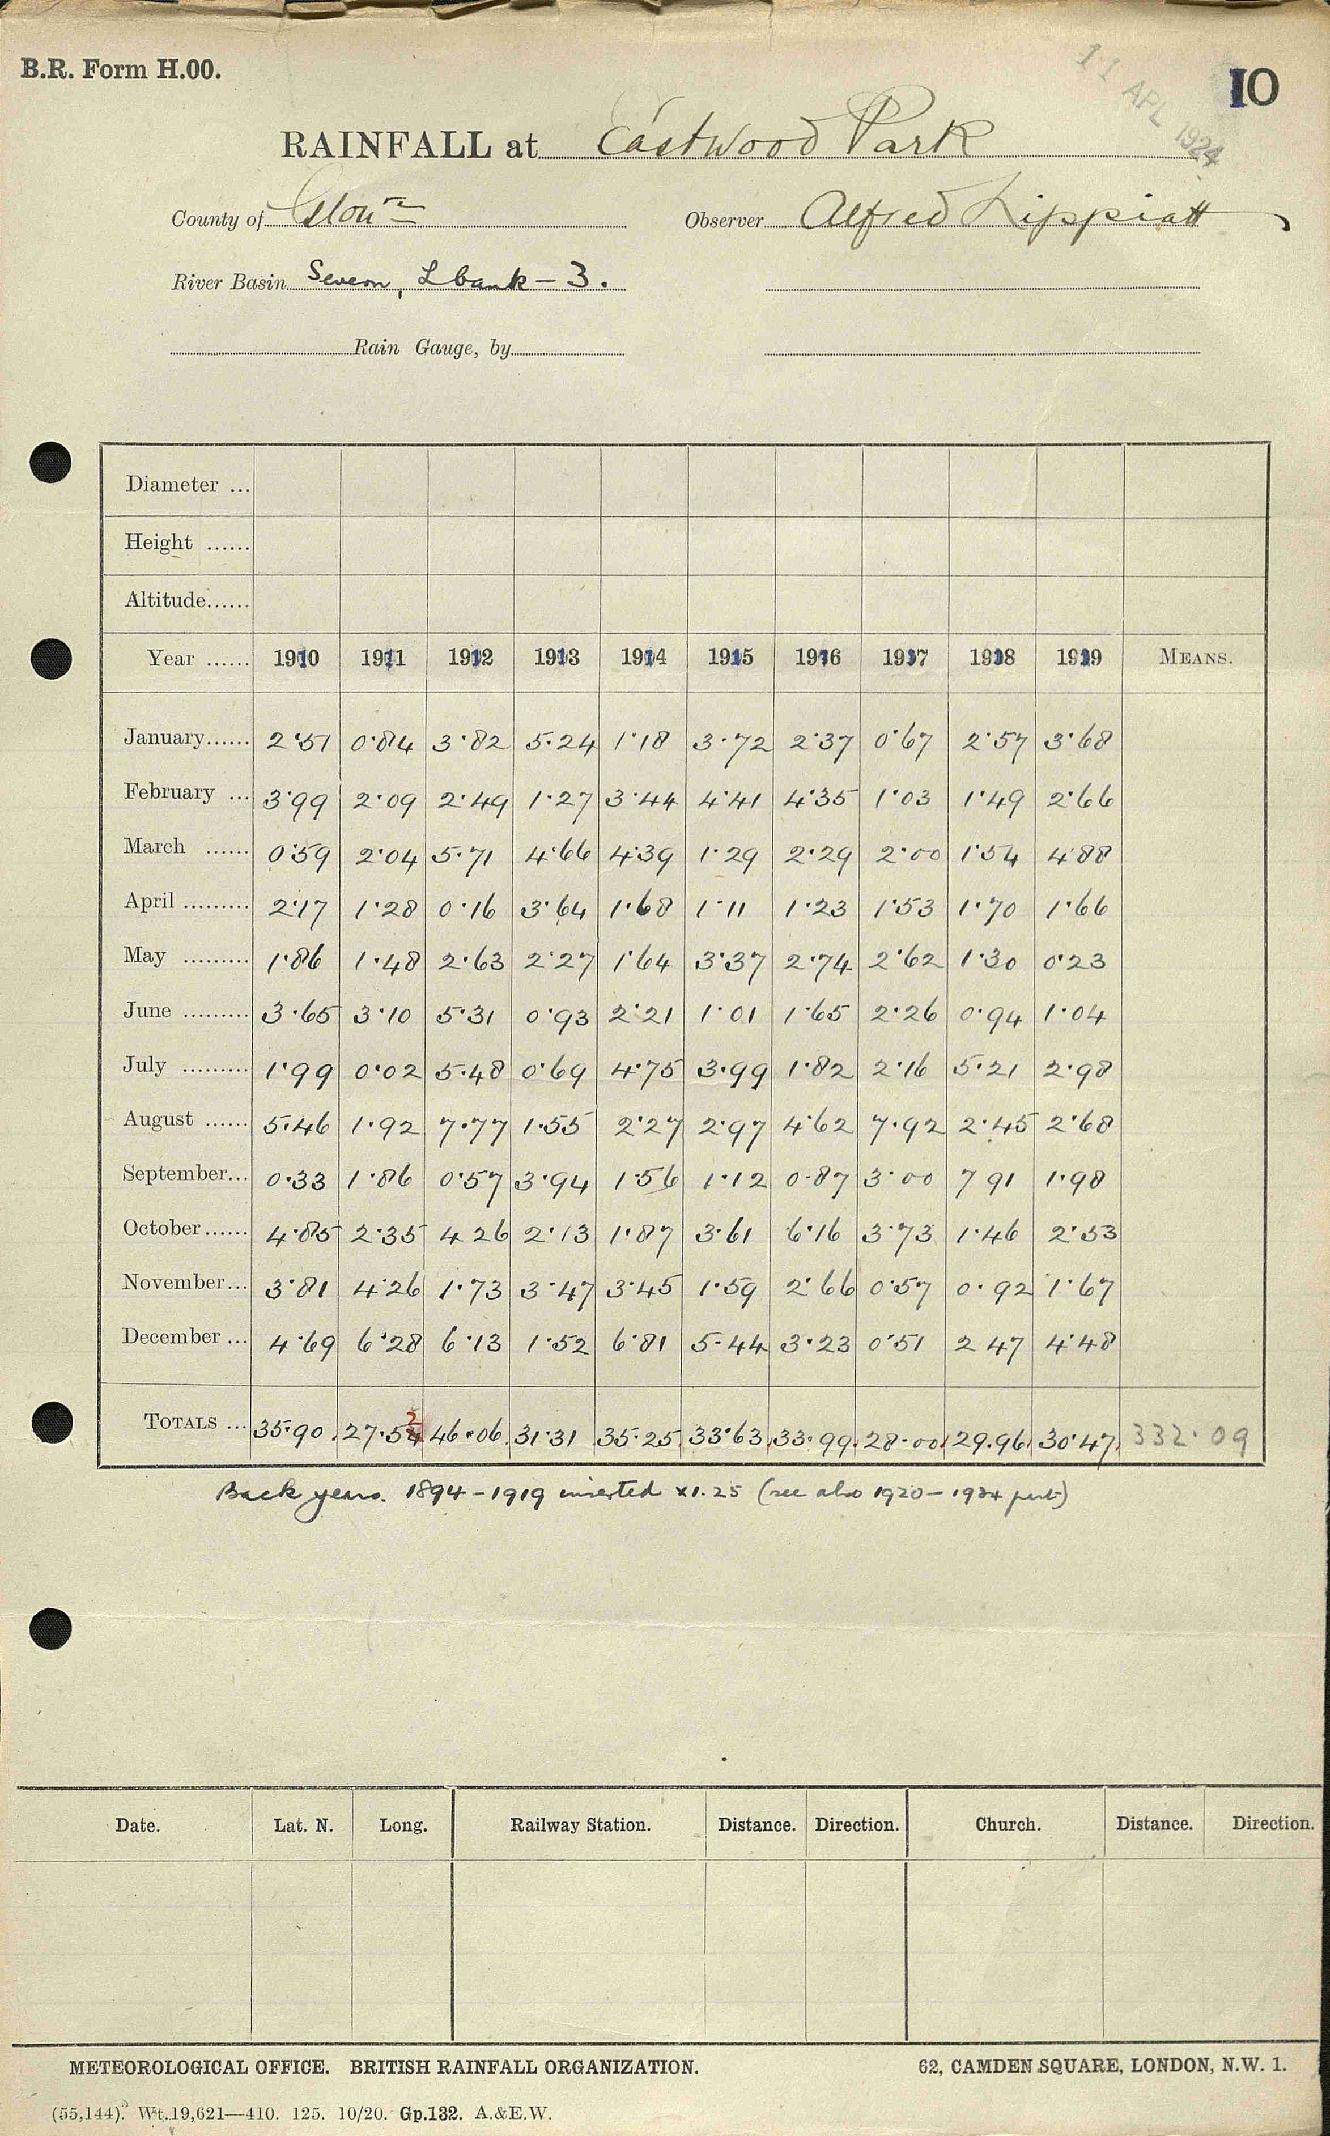 B.R. Form H.00.
11 APL 1924
10
RAINFALL at Eastwood Park
County of Glour Observer Alfred Lippiatt
River Basin Severn, L bank - 3.
Rain Gauge, by
Diameter ...
Height ......
Altitude......
Year ...... 1910 1911 1912 1913 1914 1915 1916 1917 1918 1919 MEANS.
January...... 2.51 0.84 3.82 5.24 1.18 3.72 2.37 0.67 2.57 3.68
February ... 3.99 2.09 2.49 1.27 3.44 4.41 4.35 1.03 1.49 2.66
March ...... 0.59 2.04 5.71 4.66 4.39 1.29 2.29 2.00 1.54 4.88
April ......... 2.17 1.28 0.16 3.64 1.68 1.11 1.23 1.53 1.70 1.66
May ......... 1.86 1.48 2.63 2.27 1.64 3.37 2.74 2.62 1.30 0.23
June ......... 3.65 3.10 5.31 0.93 2.21 1.01 1.65 2.26 0.94 1.04
July ......... 1.99 0.02 5.48 0.69 4.75 3.99 1.82 2.16 5.21 2.98
August ...... 5.46 1.92 7.77 1.55 2.27 2.97 4.62 7.92 2.45 2.68
September... 0.33 1.86 0.57 3.94 1.56 1.12 0.87 3.00 7 91 1.98
October...... 4.85 2.35 4 26 2.13 1.87 3.61 6.16 3.73 1.46 2.53
November... 3.81 4.26 1.73 3.47 3.45 1.59 2.66 0.57 0.92 1.67
December ... 4.69 6.28 6.13 1.52 6.81 5.44 3.23 0.51 2 47 4.48
TOTALS ... 35.90 27.52 46.06 31.31 35.25 33.63 33.99 28.00 29.96 30.47 332.09
Back years. 1894-1919 inserted x1.25 (see also 1920-1924 pert)
Date. Lat. N. Long. Railway Station. Distance. Direction. Church. Distance. Direction.
METEOROLOGICAL OFFICE. BRITISH RAINFALL ORGANIZATION. 62, CAMDEN SQUARE, LONDON, N.W. 1.
(55,144). Wt.19,621—410. 125. 10/20. Gp.132. A.&E.W.